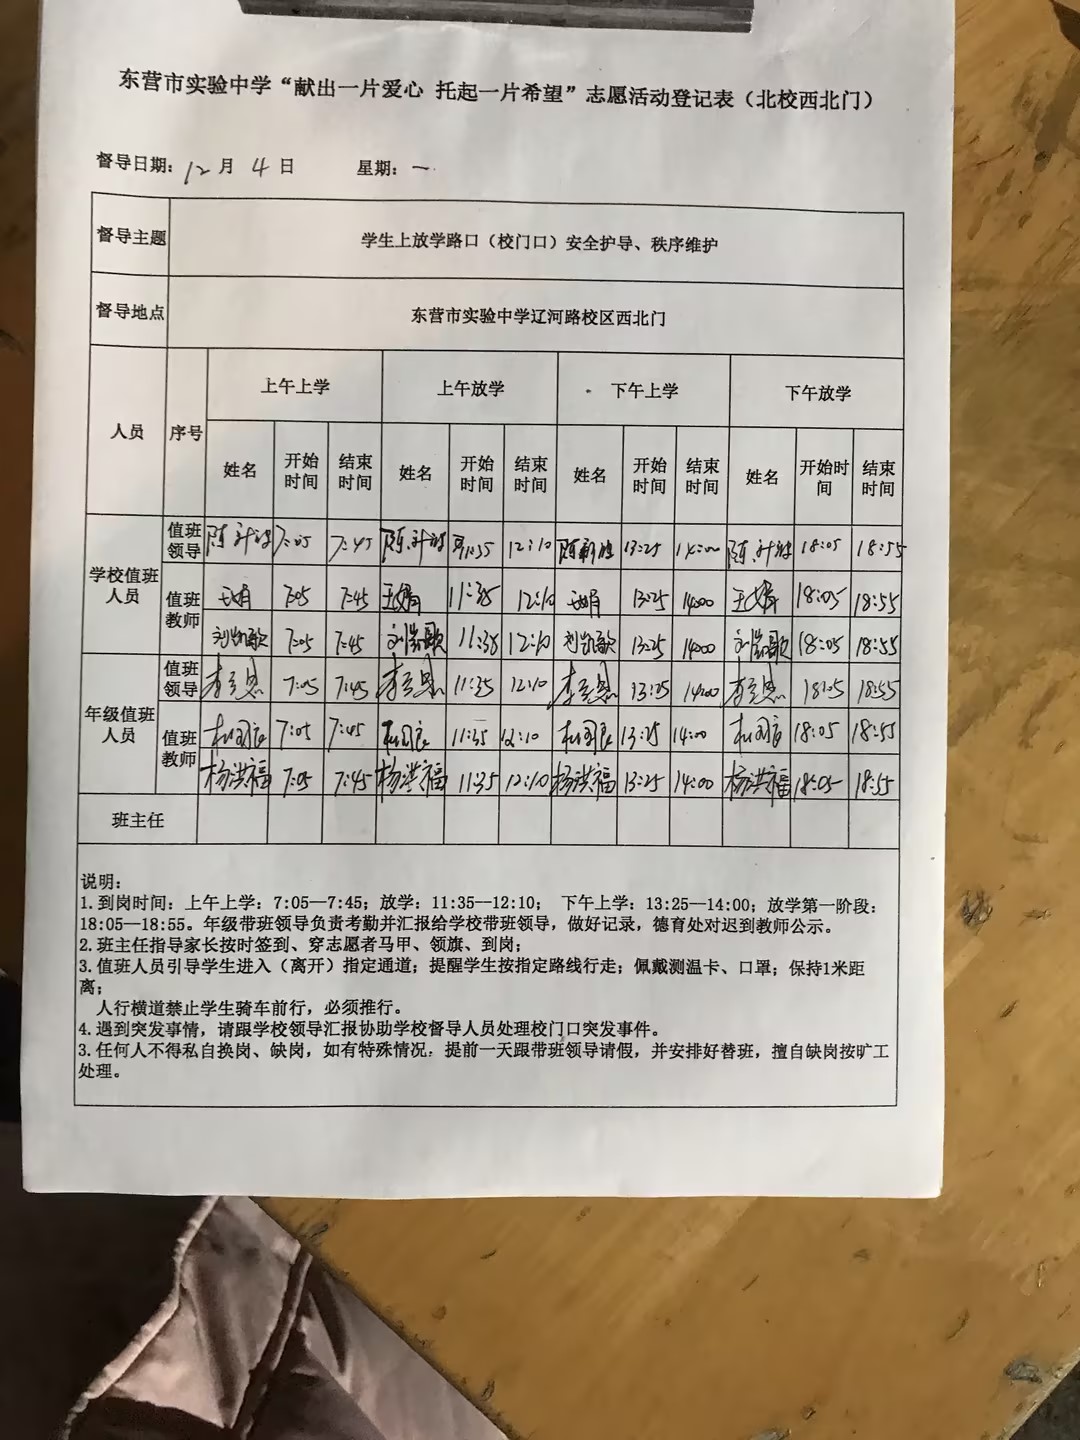 东营市实验中学“献出一片爱心 托起一片希望”志愿活动登记表（北校西北门）
督导日期：12月4日 星期：一
督导主题 学生上放学路口（校门口）安全护导、秩序维护
督导地点 东营市实验中学辽河路校区西北门
人员 序号 上午上学 上午放学 下午上学 下午放学
姓名 开始时间 结束时间 姓名 开始时间 结束时间 姓名 开始时间 结束时间 姓名 开始时间 结束时间
学校值班人员 值班领导 7:05 7:45 11:35 12:10 13:25 14:00 18:05 18:55
值班教师 7:05 7:45 王娟 11:35 12:10 13:25 14:00 王娟 18:05 18:55
刘凯歌 7:05 7:45 刘凯歌 11:35 12:10 刘凯歌 13:25 14:00 刘凯歌 18:05 18:55
年级值班人员 值班领导 7:05 7:45 11:35 12:10 13:25 14:00 18:05 18:55
值班教师 7:05 7:45 11:35 12:10 13:25 14:00 18:05 18:55
杨洪福 7:05 7:45 杨洪福 11:35 12:10 杨洪福 13:25 14:00 杨洪福 18:05 18:55
班主任
说明：
1.到岗时间：上午上学：7:05—7:45；放学：11:35—12:10； 下午上学：13:25—14:00；放学第一阶段：
18:05—18:55。年级带班领导负责考勤并汇报给学校带班领导，做好记录，德育处对迟到教师公示。
2.班主任指导家长按时签到、穿志愿者马甲、领旗、到岗；
3.值班人员引导学生进入（离开）指定通道；提醒学生按指定路线行走；佩戴测温卡、口罩；保持1米距
离；
人行横道禁止学生骑车前行，必须推行。
4.遇到突发事情，请跟学校领导汇报协助学校督导人员处理校门口突发事件。
3.任何人不得私自换岗、缺岗，如有特殊情况：提前一天跟带班领导请假，并安排好替班，擅自缺岗按旷工
处理。